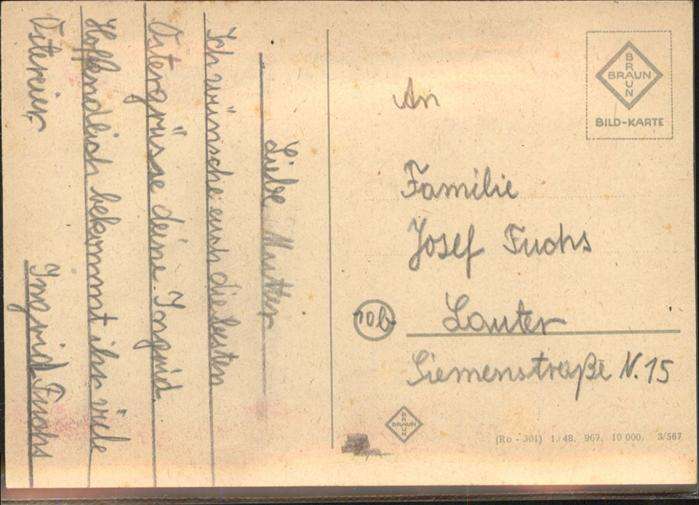 Liebe Mutter
Ich wünsche euch die besten
Ostergrüsse deine Ingrid
Hoffendlich bekommt ihr viele
Ostereier
Ingrid Fuchs
An
Familie
Josef Fuchs
10b
Lauter
Siemenstraße N. 15
BRAUN
BRAUN
BILD-KARTE
BRAUN
BRAUN
(Ro - 301) 1. 48. 967. 10 000. 3/567